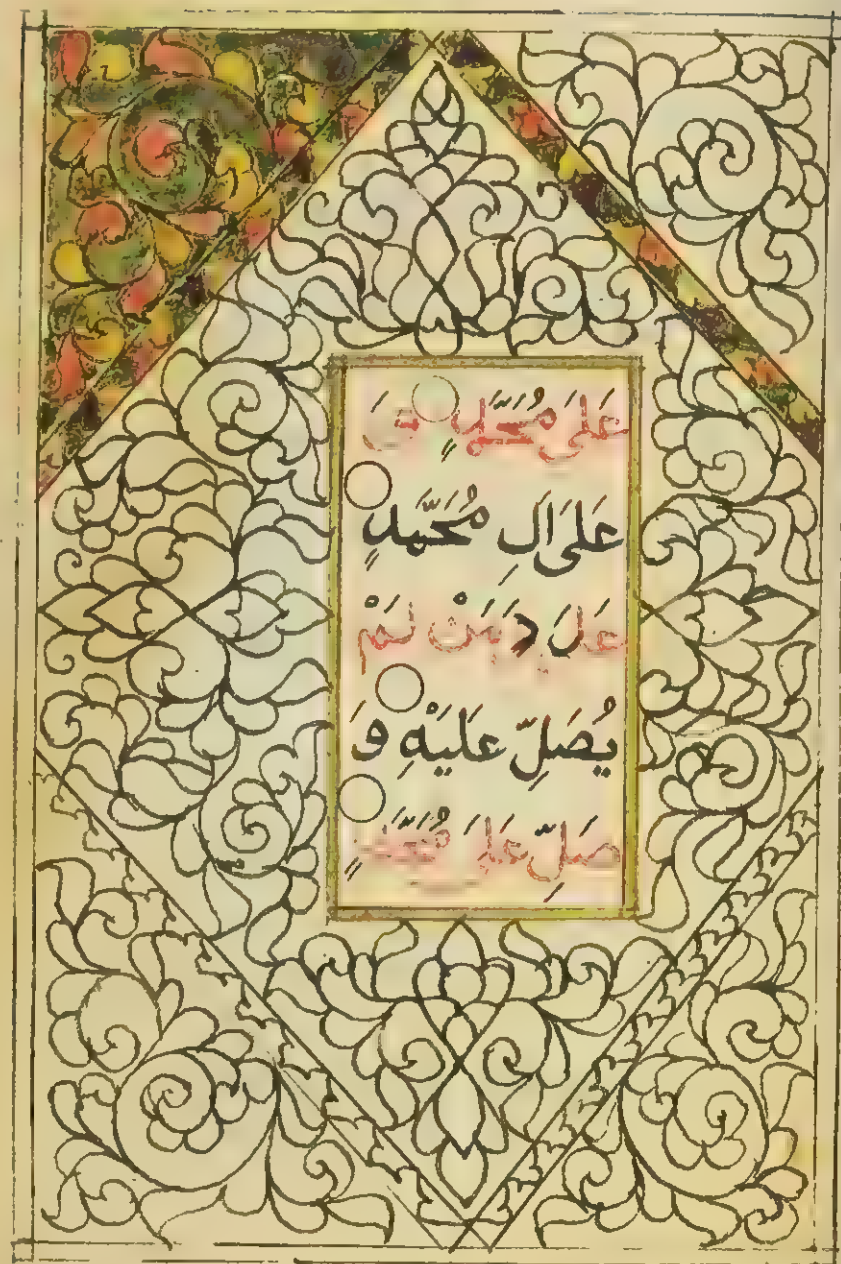 عَلَى مُحَمَّدٍ وَ
عَلَى اَلِ مُحَمَّدٍ
عَدَدَ مَنْ لَمْ
يُصَلِّ عَلَيْهِ وَ
صَلِّ عَلَى مُحَمَّدٍ